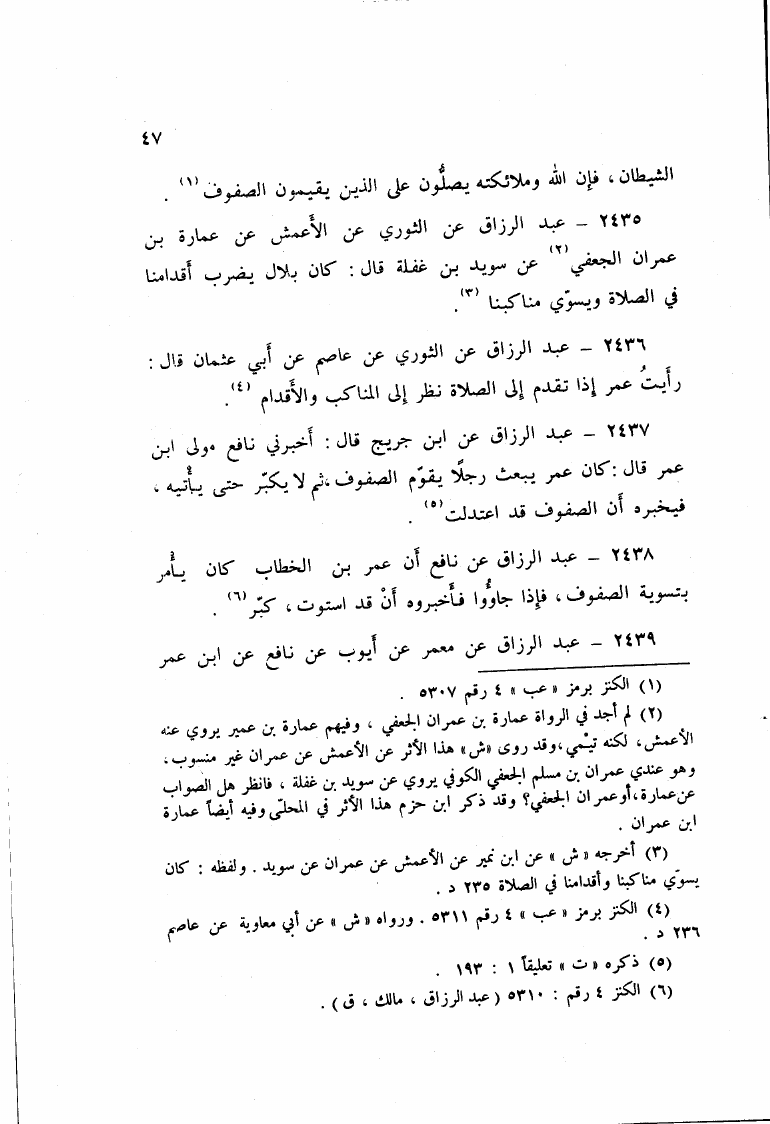 ٤٧
الشيطان ، فإن الله وملائكته يصلُّون على الذين يقيمون الصفوف (١) .
٢٤٣٥ – عبد الرزاق عن الثوري عن الأَعمش عن عمارة بن
عمران الجعفي (٢) عن سويد بن غفلة قال : كان بلال يضرب أَقدامنا
في الصلاة ويسوّي مناكبنا (٣) .
٢٤٣٦ – عبد الرزاق عن الثوري عن عاصم عن أَبي عثمان قال :
رأَيتُ عمر إِذا تقدم إِلى الصلاة نظر إِلى المناكب والأَقدام (٤) .
٢٤٣٧ – عبد الرزاق عن ابن جريج قال : أَخبرني نافع مولى ابن
عمر قال : كان عمر يبعث رجلًا يقوّم الصفوف ، ثم لا يكبّر حتى يأْتيه ،
فيخبره أَن الصفوف قد اعتدلت (٥) .
٢٤٣٨ – عبد الرزاق عن نافع أَن عمر بن الخطاب كان يأْمر
بتسوية الصفوف ، فإذا جاؤُوا فأَخبروه أَنْ قد استوت ، كبّر (٦) .
٢٤٣٩ – عبد الرزاق عن معمر عن أَيوب عن نافع عن ابن عمر
(١) الكنز برمز « عب » ٤ رقم ٥٣٠٧ .
(٢) لم أجد في الرواة عمارة بن عمران الجعفي ، وفيهم عمارة بن عمير يروي عنه
الأعمش ، لكنه تيْمي ، وقد روى « ش » هذا الأثر عن الأعمش عن عمران غير منسوب ،
وهو عندي عمران بن مسلم الجعفي الكوفي يروي عن سويد بن غفلة ، فانظر هل الصواب
عن عمارة ، أو عمران الجعفي؟ وقد ذكر ابن حزم هذا الأثر في المحلّى وفيه أيضاً عمارة
ابن عمران .
(٣) أخرجه « ش » عن ابن نمير عن الأعمش عن عمران عن سويد . ولفظه : كان
يسوّي مناكبنا وأقدامنا في الصلاة ٢٣٥ د .
(٤) الكنز برمز « عب » ٤ رقم ٥٣١١ . ورواه « ش » عن أبي معاوية عن عاصم
٢٣٦ د .
(٥) ذكره « ت » تعليقاً ١ : ١٩٣ .
(٦) الكنز ٤ رقم : ٥٣١٠ ( عبد الرزاق ، مالك ، ق ) .